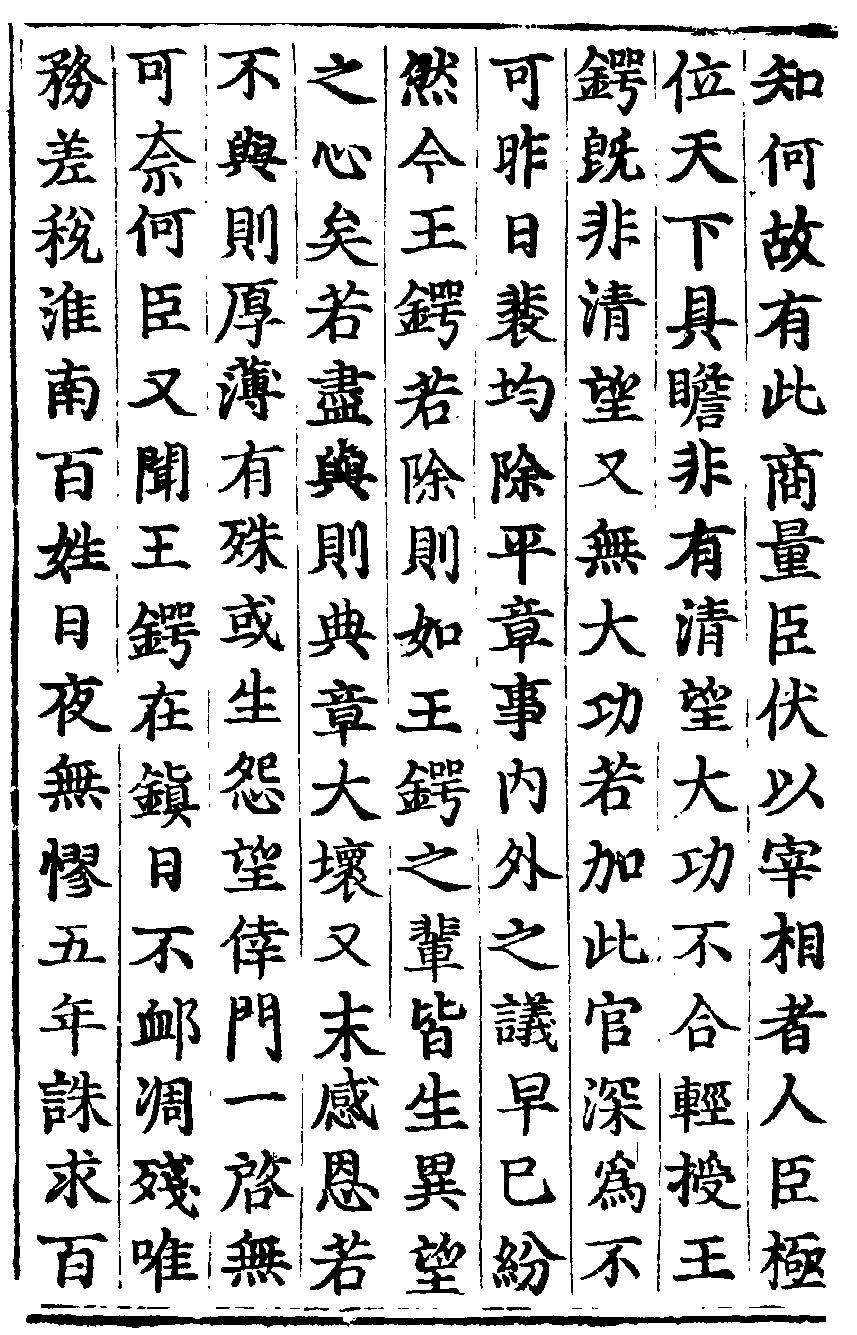 知何故有此商量臣伏以宰相者人臣極
位天下具瞻非有清望大功不合輕授王
鍔旣非清望又無大功若加此官深爲不
可昨日裴均除平章事内外之議早已紛
然今王鍔若除則如王鍔之輩皆生異望
之心矣若盡與則典章大壞又未感恩若
不與則厚薄有殊或生怨望倖門一啓無
可奈何臣又聞王鍔在鎮日不衈凋殘唯
務差稅淮南百姓日夜無憀五年誅求百